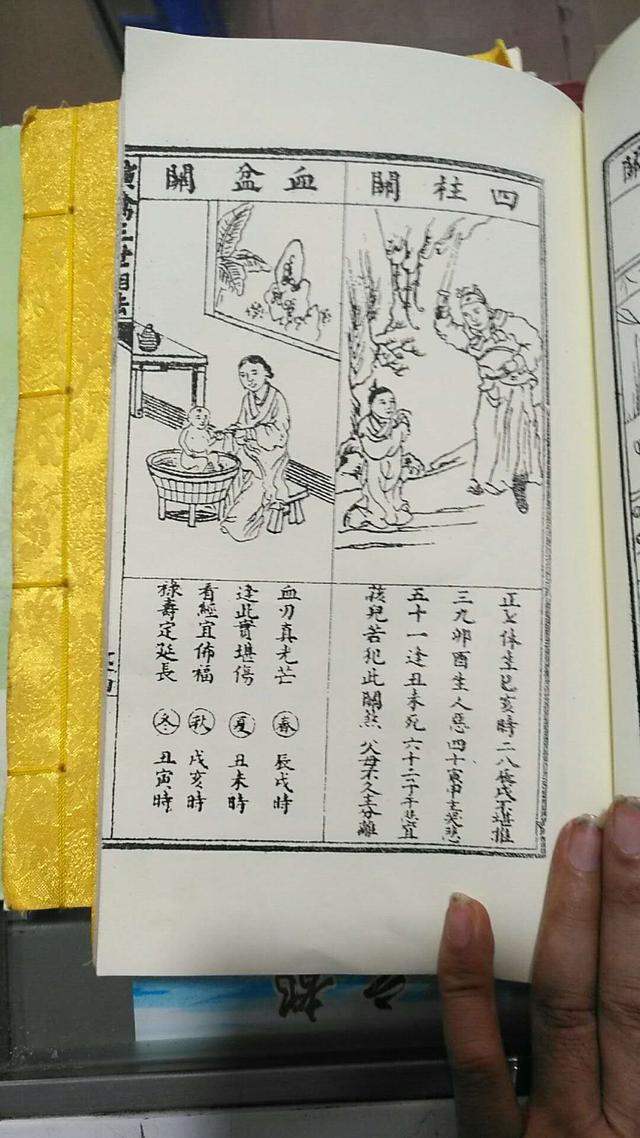 四柱關
正七休生巳亥時 二八辰戌不堪推
三九卯酉生人惡 四十寅申主哭悲
五十一逢丑未死 六十二子午悲宜
孩兒若犯此關煞 父母不久主分離
血盆關
血刃真光芒 春 辰戌時
逢此實堪傷 夏 丑未時
看經宜佈福 秋 戌亥時
祿壽定延長 冬 丑寅時
演禽三世相法